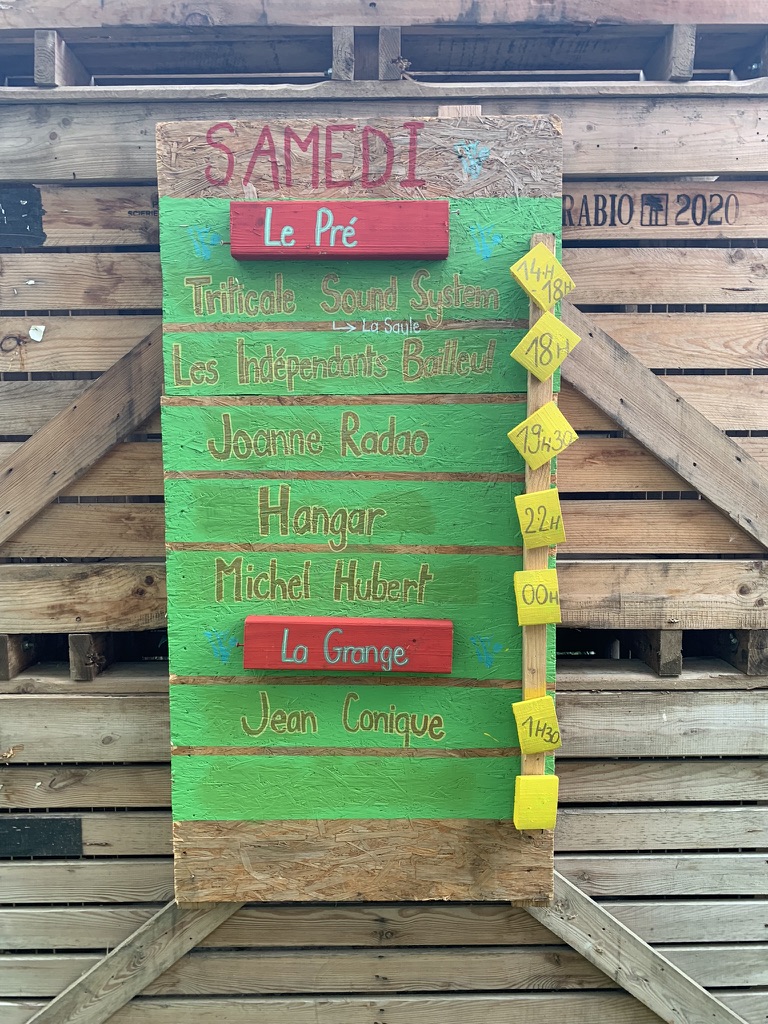 SAMEDI
RABIO 2020
Le Pré
14H-18H
Triticale Sound System
→ La Saule
Les Indépendants Bailleul
18H
Joanne Radao
19H30
Hangar
22H
Michel Hubert
00H
La Grange
Jean Conique
1H30